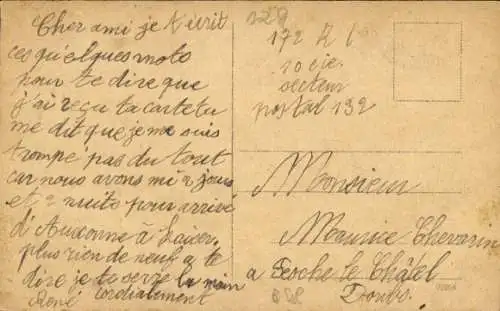 Cher ami je t'écrit
ces quelques mots
pour te dire que
j'ai reçu ta carte tu
me dit que je me suis
trompé pas du tout
car nous avons mi 2 jours
et 2 nuits pour arrivé
d'Auxonne à
plus rien de neuf a te
dire je te serre la main
cordialement
René
172 R I
10 cie
secteur
postal 132
Monsieur
Maurice Chevanin
a Pesche le Châtel
Doubs